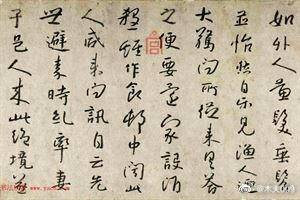 如外人黄髮垂髫
並怡然自樂見漁人
大驚問所從來具答
之便要還家設酒
殺雞作食村中聞此
人咸來問訊自云先
世避秦時亂率妻
子邑人來此絕境